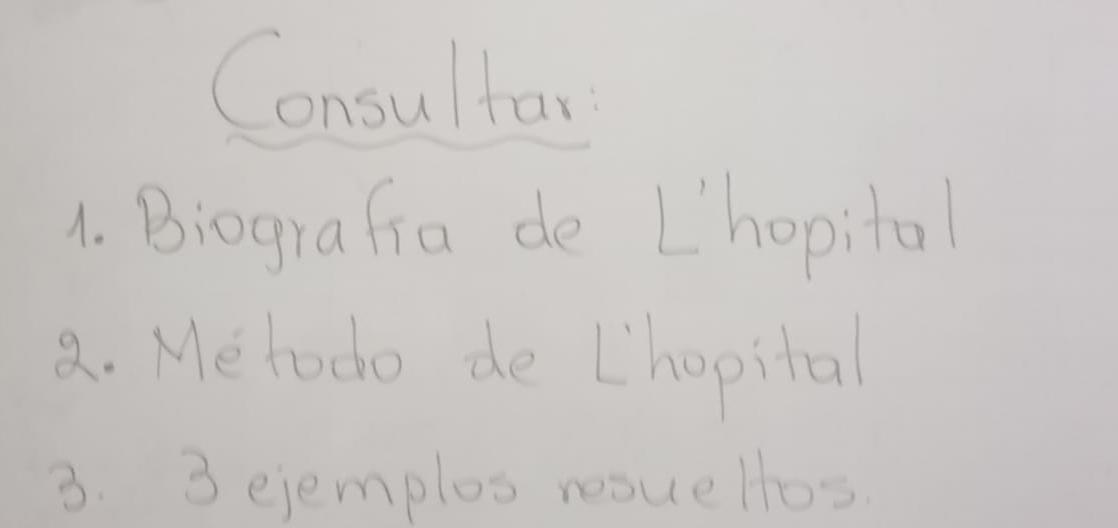 Consultar:
1. Biografía de L'hopital
2. Método de L'hopital
3. 3 ejemplos resueltos.